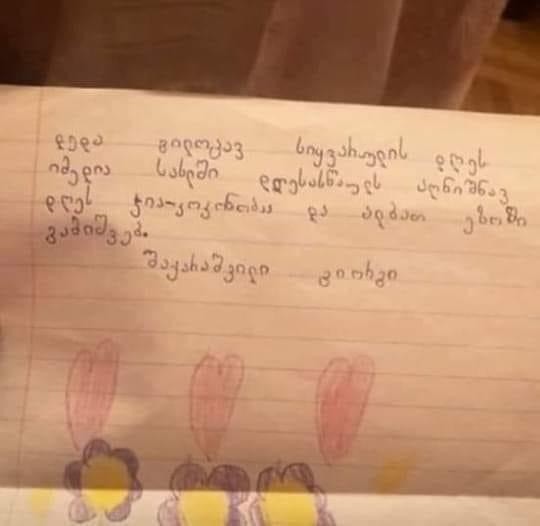 დედა გილოცავ სიყვარულის დღეს
იმედია სახლში დღესასწაულს აღნიშნავ
დღეს ჭიაკოკონობაა და ალბათ ეზოში
გამიშვებ.
შაქარაშვილი გიორგი